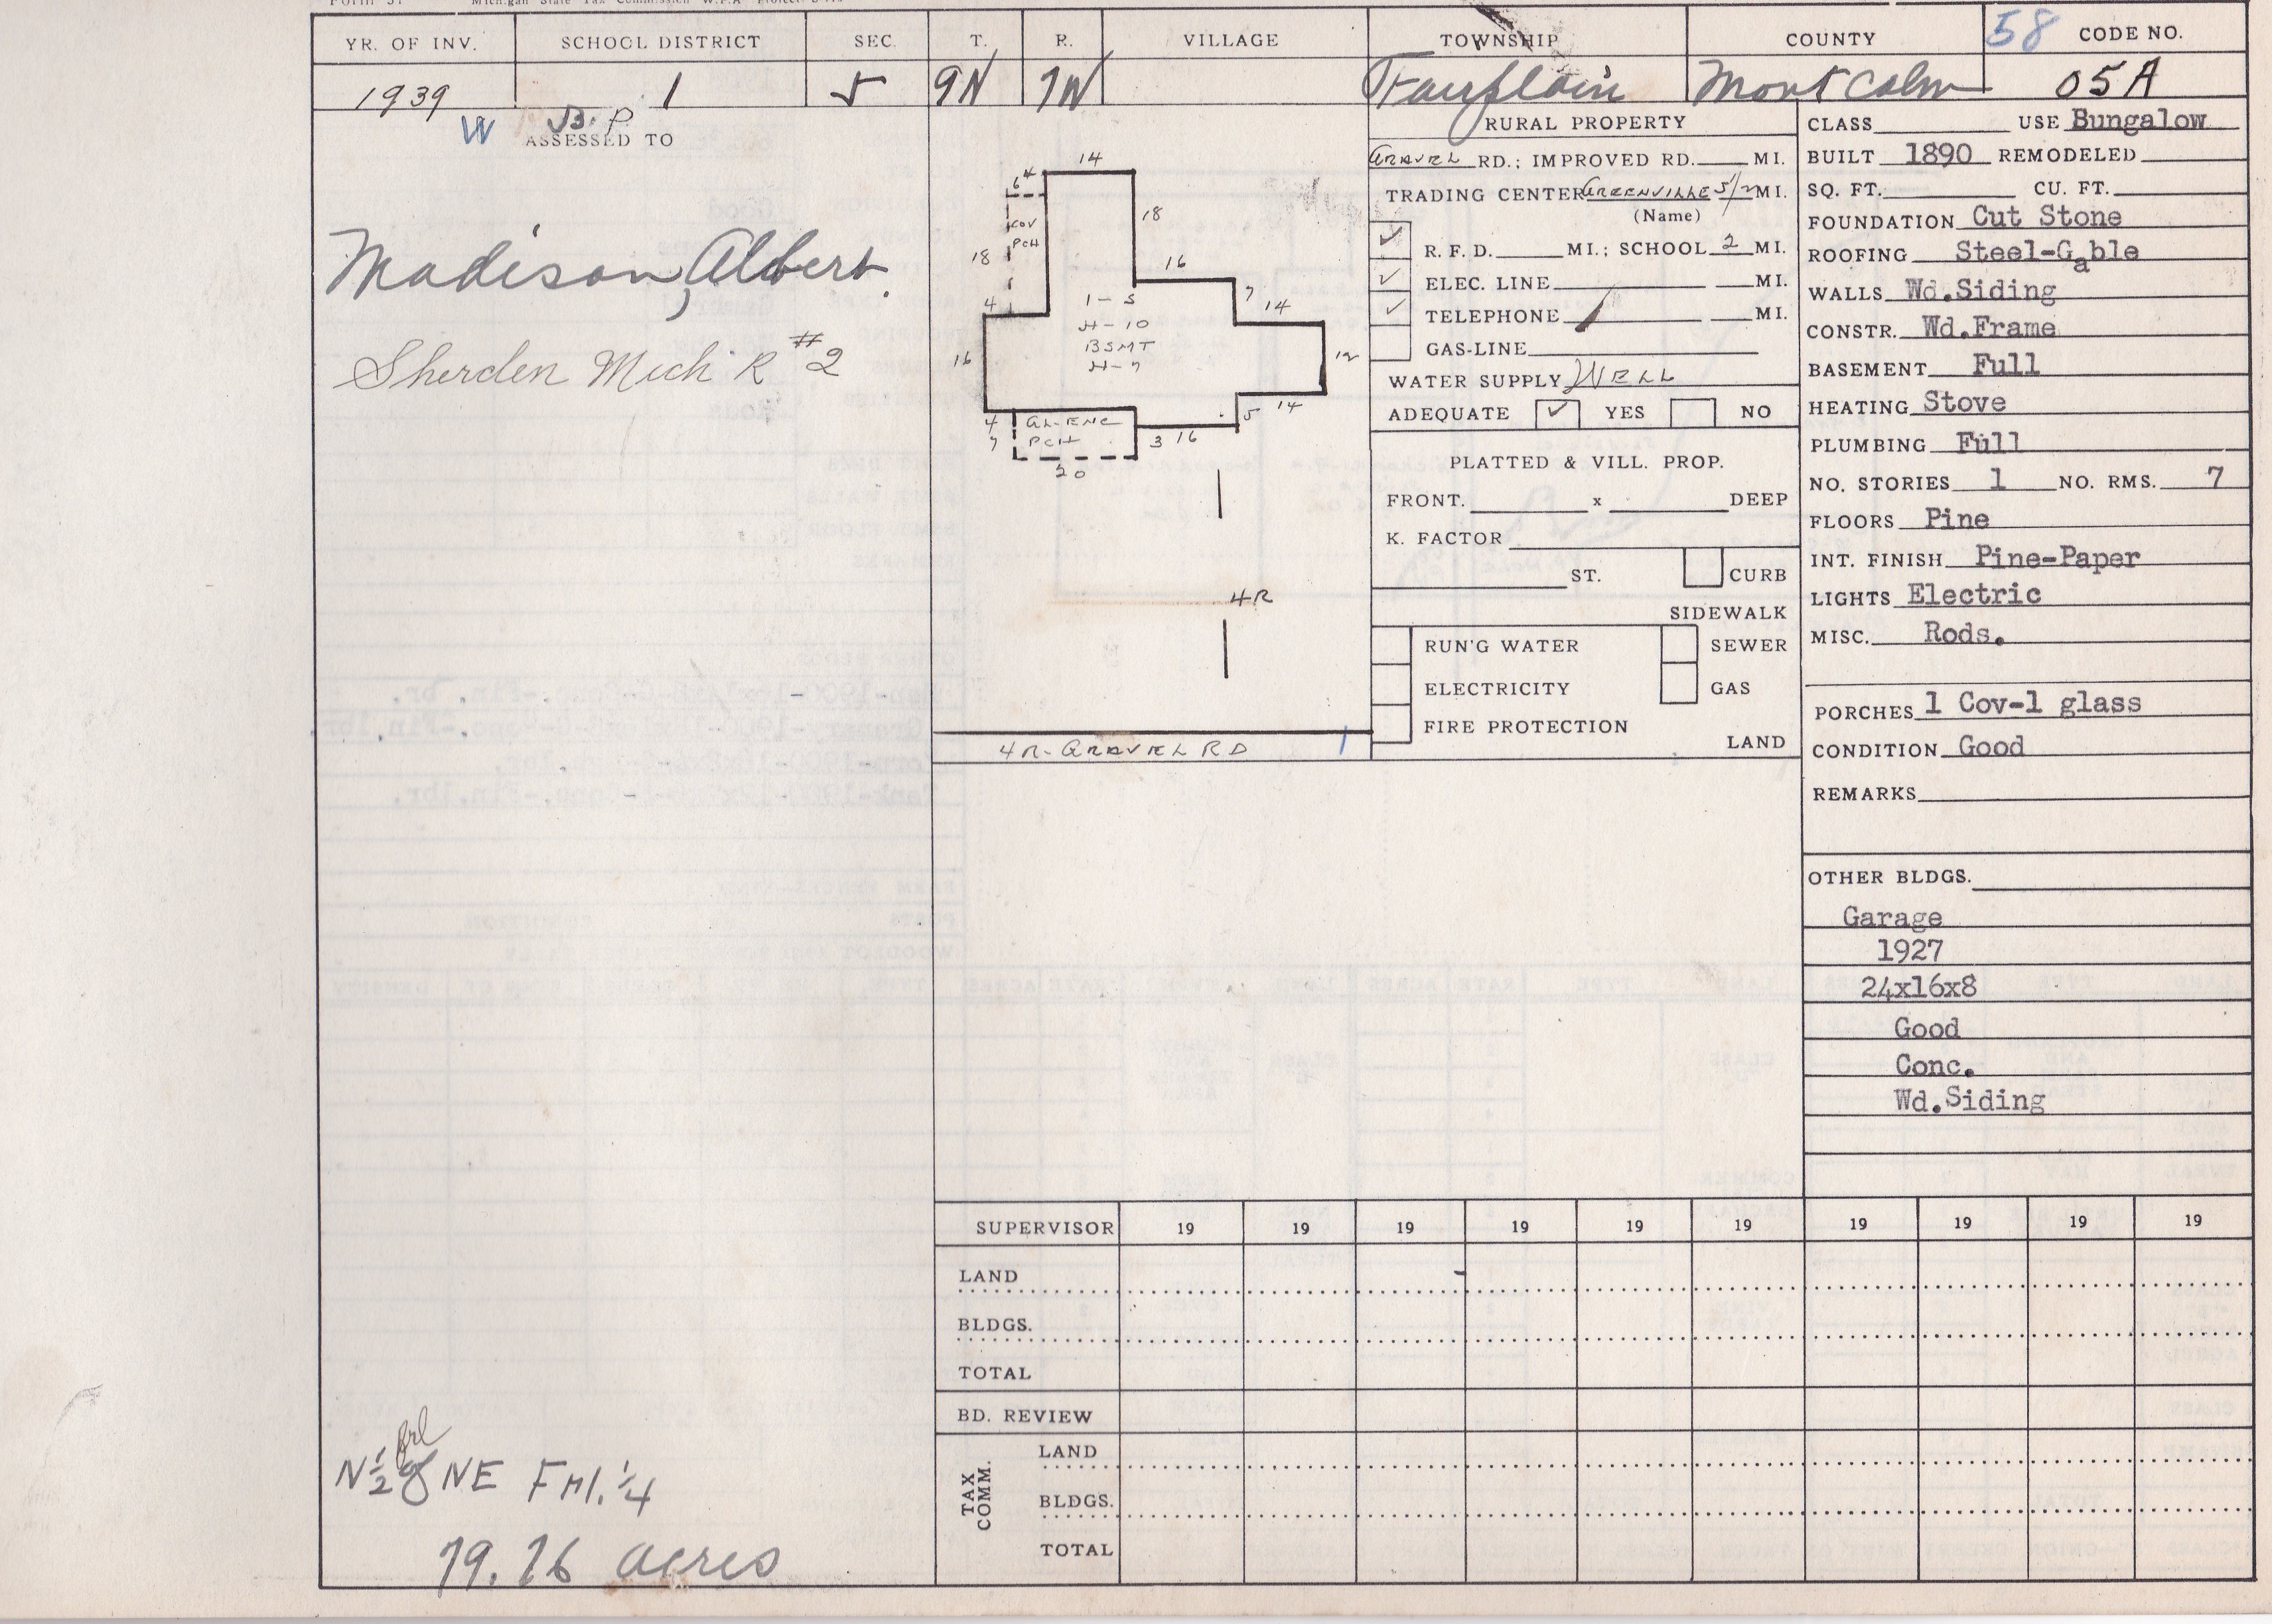 Form 31 Michigan State Tax Commission W.P.A. Project
YR. OF INV. SCHOOL DISTRICT SEC. T. R. VILLAGE TOWNSHIP COUNTY 58 CODE NO.
1939 1 5 9N 7W Fairplain Montcalm 05A
W B. P.
ASSESSED TO
Madison, Albert.
Sherden Mich R #2
N 1/2 frl of NE Frl. 1/4
79.76 acres
14
6 4
COV
PCH
18
18
16
4
7
14
1-S
H-10
BSMT
H-7
16
12
14
5
4
7
GL-ENC
PCH
3 16
20
4R
4R-GRAVEL RD 1
RURAL PROPERTY
GRAVEL RD.; IMPROVED RD. MI.
TRADING CENTER GREENVILLE 5 1/2 MI.
(Name)
✓ R. F. D. MI.; SCHOOL 2 MI.
✓ ELEC. LINE MI.
✓ TELEPHONE MI.
GAS-LINE
WATER SUPPLY WELL
ADEQUATE ✓ YES NO
PLATTED & VILL. PROP.
FRONT. x DEEP
K. FACTOR
ST. CURB
SIDEWALK
RUN'G WATER SEWER
ELECTRICITY GAS
FIRE PROTECTION
LAND
CLASS USE Bungalow
BUILT 1890 REMODELED
SQ. FT. CU. FT.
FOUNDATION Cut Stone
ROOFING Steel-Gable
WALLS Wd.Siding
CONSTR. Wd.Frame
BASEMENT Full
HEATING Stove
PLUMBING Full
NO. STORIES 1 NO. RMS. 7
FLOORS Pine
INT. FINISH Pine-Paper
LIGHTS Electric
MISC. Rods.
PORCHES 1 Cov-1 glass
CONDITION Good
REMARKS
OTHER BLDGS.
Garage
1927
24x16x8
Good
Conc.
Wd.Siding
SUPERVISOR 19 19 19 19 19 19 19 19 19 19
LAND
BLDGS.
TOTAL
BD. REVIEW
TAX COMM.
LAND
BLDGS.
TOTAL